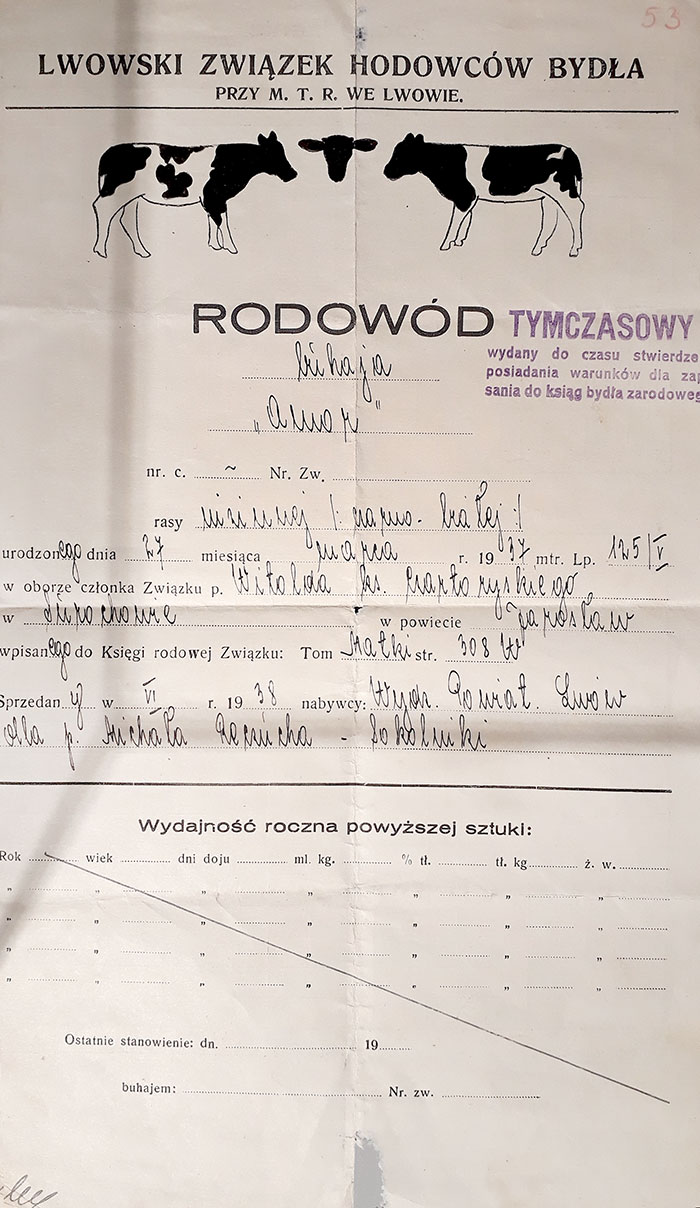 53
LWOWSKI ZWIĄZEK HODOWCÓW BYDŁA
PRZY M. T. R. WE LWOWIE.
RODOWÓD TYMCZASOWY
wydany do czasu stwierdze
posiadania warunków dla zap
sania do ksiąg bydła zarodoweg
buhaja
„Amor"
nr. c. ~ Nr. Zw.
rasy nizinnej /: czarno-białej :/
urodzonego dnia 27 miesiąca marca r. 1937 mtr. Lp. 125/V
w oborze członka Związku p. Witolda ks. Czartoryskiego
w w powiecie Jarosław
wpisanego do Księgi rodowej Związku: Tom Matki str. 308 W
Sprzedany w VI r. 1938 nabywcy: Wydz. Powiat. Lwów
dla p. Michała - Sokolniki
Wydajność roczna powyższej sztuki:
Rok wiek dni doju ml. kg. % tł. tł. kg ż. w.
„ „ „ „ „ „ „
„ „ „ „ „ „ „
„ „ „ „ „ „ „
„ „ „ „ „ „ „
Ostatnie stanowienie: dn. 19
buhajem: Nr. zw.